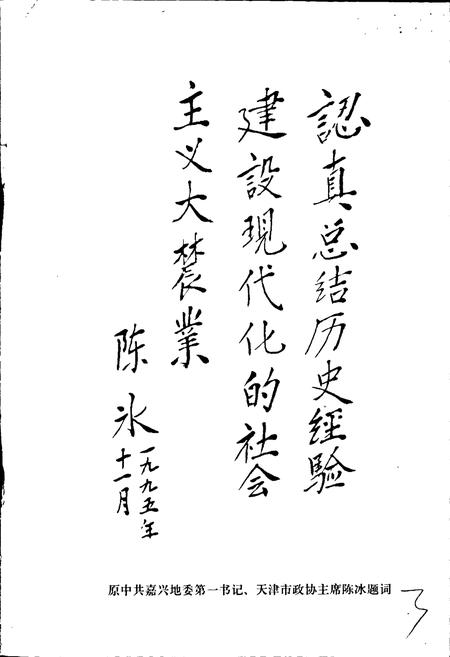 認真总结历史经驗
建設現代化的社会
主义大辳業
陈冰
一九九五年
十一月
原中共嘉兴地委第一书记、天津市政协主席陈冰题词
3